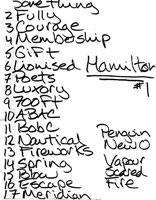 Something
2 Fully
3 Courage
4 Membership
5 Gift
6 Lionised
Hamilton
7 Poets
#1
8 Luxury
9 700ft
10 ABAC
11 BobC
12 Nautical
13 Fireworks
14 Spring
15 Blow
16 Escape
17 Meridian
Penguin
New O
Vapour
Scared
Fire